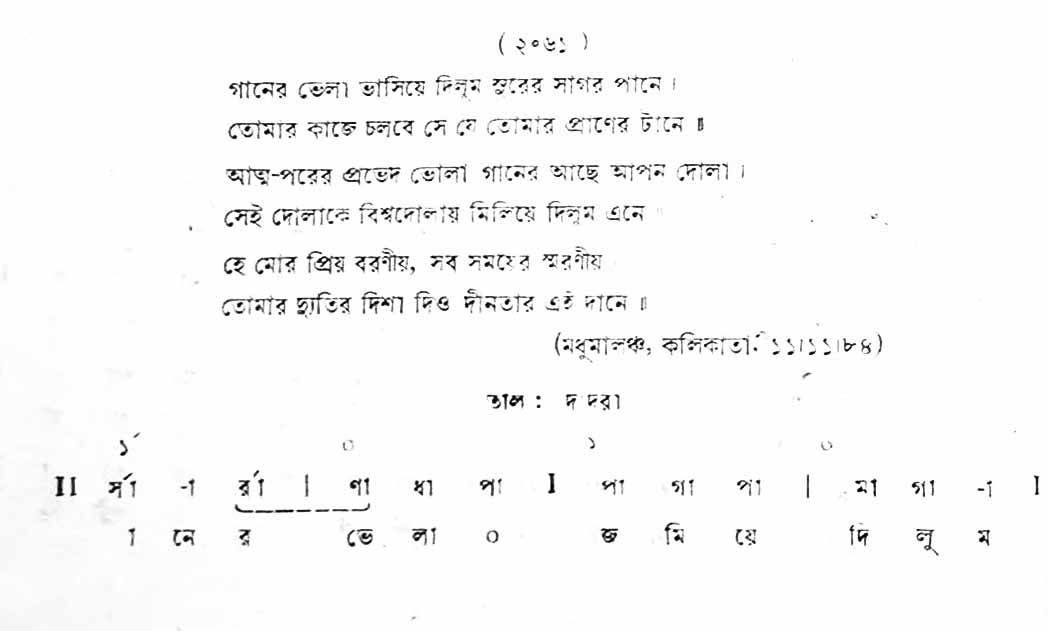 ( ২০৬১ )
গানের ভেলা ভাসিয়ে দিলুম সুরের সাগর পানে ।
তোমার কাজে চলবে সে যে তোমার প্রাণের টানে ॥
আত্ম-পরের প্রভেদ ভোলা গানের আছে আপন দোলা ।
সেই দোলাকে বিশ্বদোলায় মিলিয়ে দিলুম এনে
হে মোর প্রিয় বরণীয়, সব সময়ের স্মরণীয়
তোমার দ্যুতির দিশা দিও দীনতার এই দানে ॥
(মধুমালঞ্চ, কলিকাতা. ১১।১১।৮৪)
তাল : দাদরা
১´ ০ ১ ০
II র্সা -া র্রা | ণা ধা পা I পা গা পা | মা গা -া I
া নে র ভে লা ০ ভ মি য়ে দি লু ম